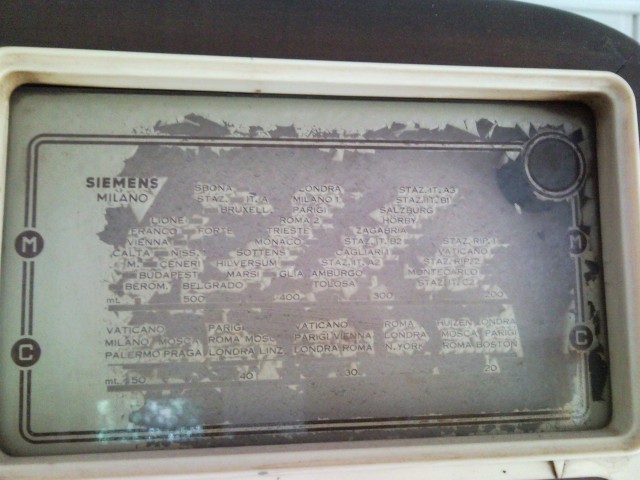 SIEMENS
MILANO
SBONA LONDRA STAZ. IT. A3
STAZ. IT. A MILANO 1 STAZ. IT. B1
BRUXELL. PARIGI SALZBURG
LIONE ROMA 2 HÖRBY
FRANCO FORTE TRIESTE ZAGABRIA
VIENNA MONACO STAZ. IT. B2 STAZ. RIP.
CALTA NISS. SOTTENS CAGLIARI 1 VATICANO
M. CENERI HILVERSUM STAZ. IT. A2 STAZ. RIP. 2
BUDAPEST MARSI GLIA AMBURGO MONTECARLO
BEROM. BELGRADO TOLOSA STAZ. IT. C2
mt. 500 400 300 200
M M
VATICANO PARIGI VATICANO ROMA HUIZEN ONDRA
MILANO MOSC ROMA MOSC PARIGI VIENNA LONDRA MOSCA PARIGI
PALERMO PRAGA LONDRA LINZ LONDRA ROMA N. YORK ROMA BOSTON
C C
mt. 50 40 30 20